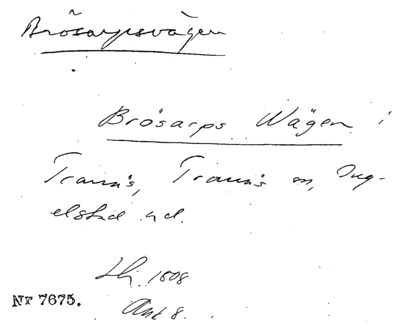 Brösarpsvägen
Brösarps Wägen i
Tranås, Tranås sn, Ing-
elstad hd.
1808
NF 7675.
Akt 8.